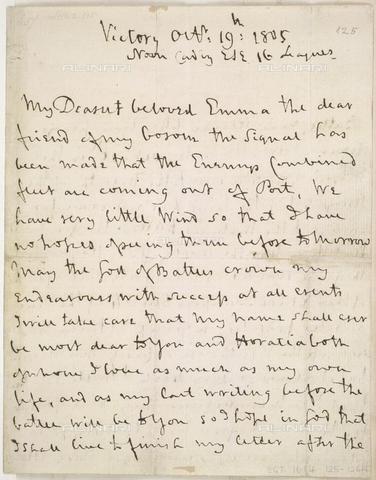 Victory Octr. 19th: 1805
125
Noon Cadiz ESE 16 Leagues
My Dearest beloved Emma the dear
friend of my bosom the Signal has
been made that the Enemys Combined
fleet are coming out of Port, We
have very little Wind so that I have
no hopes of seeing them before tomorrow
May the God of Battles crown my
Endeavours with success at all events
I will take care that my name shall ever
be most dear to You and Horatia both
of whom I love as much as my own
life, and as my last writing before the
battle will be to You so I hope in God that
I shall live to finish my letter after the
ALINARI